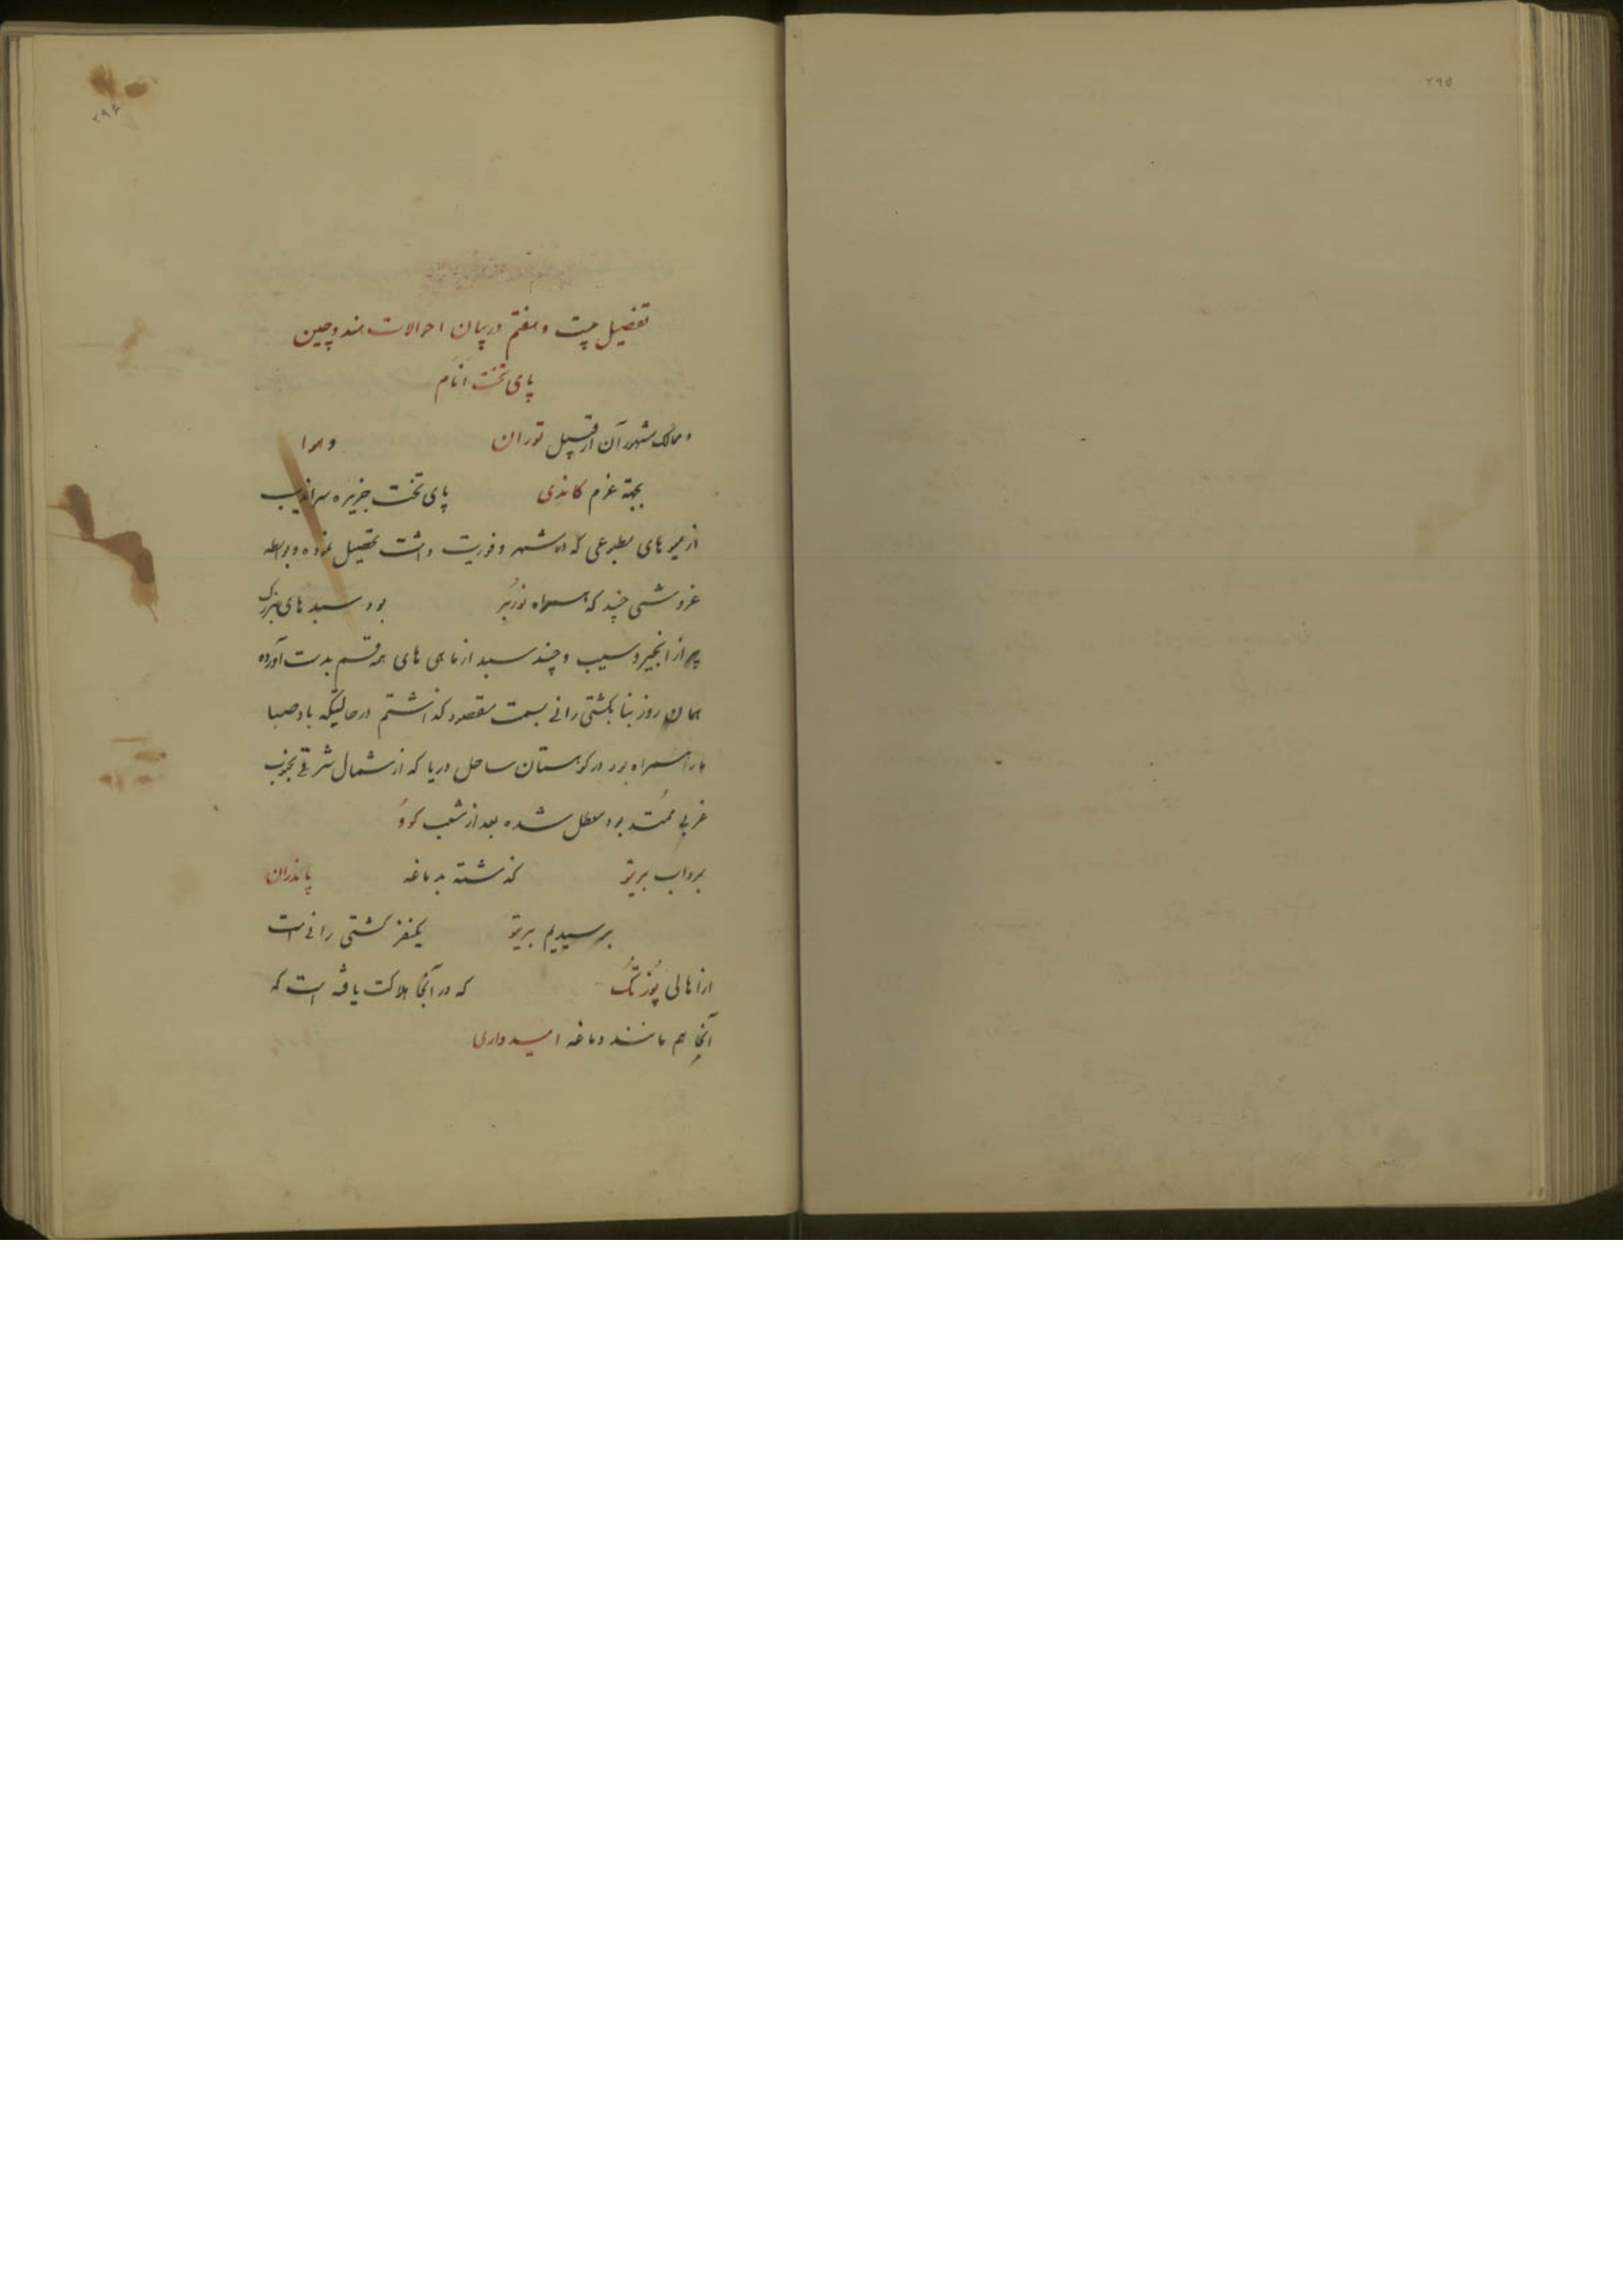 ۲۹۵
۲۹۶
تفضیل بیست و هفتم در بیان احوالات هند و چین
پای تخت انام
و ممالک مشهور آن از قبیل توران و هوا
بجهة عزم کاندی پای تخت جزیره سراندیب
از میوه های مطبوعی که در شهر وفوریت داشت تحصیل نموده و بواسطه
غروشی چند که همراه نوربر بود سبد های بزرگ
پر از انجیر و سیب و چند سبد از ماهی های همه قسم بدست آورده
همان روز بنا بکشتی رانی بسمت مقصود گذاشتم در حالتیکه باد صبا
ما را همراه بود در کوهستان ساحل دریا که از شمال شرقی بجنوب
غربی ممتد بود معطل شده بعد از شعب کوو
برداب بریتو گذشته بدماغه پاندران
برسیدیم بریتو یکنفر کشتی رانی است
از اهالی پُورتک که در آنجا هلاکت یافته است که
آنجا هم مانند دماغه امیدواری